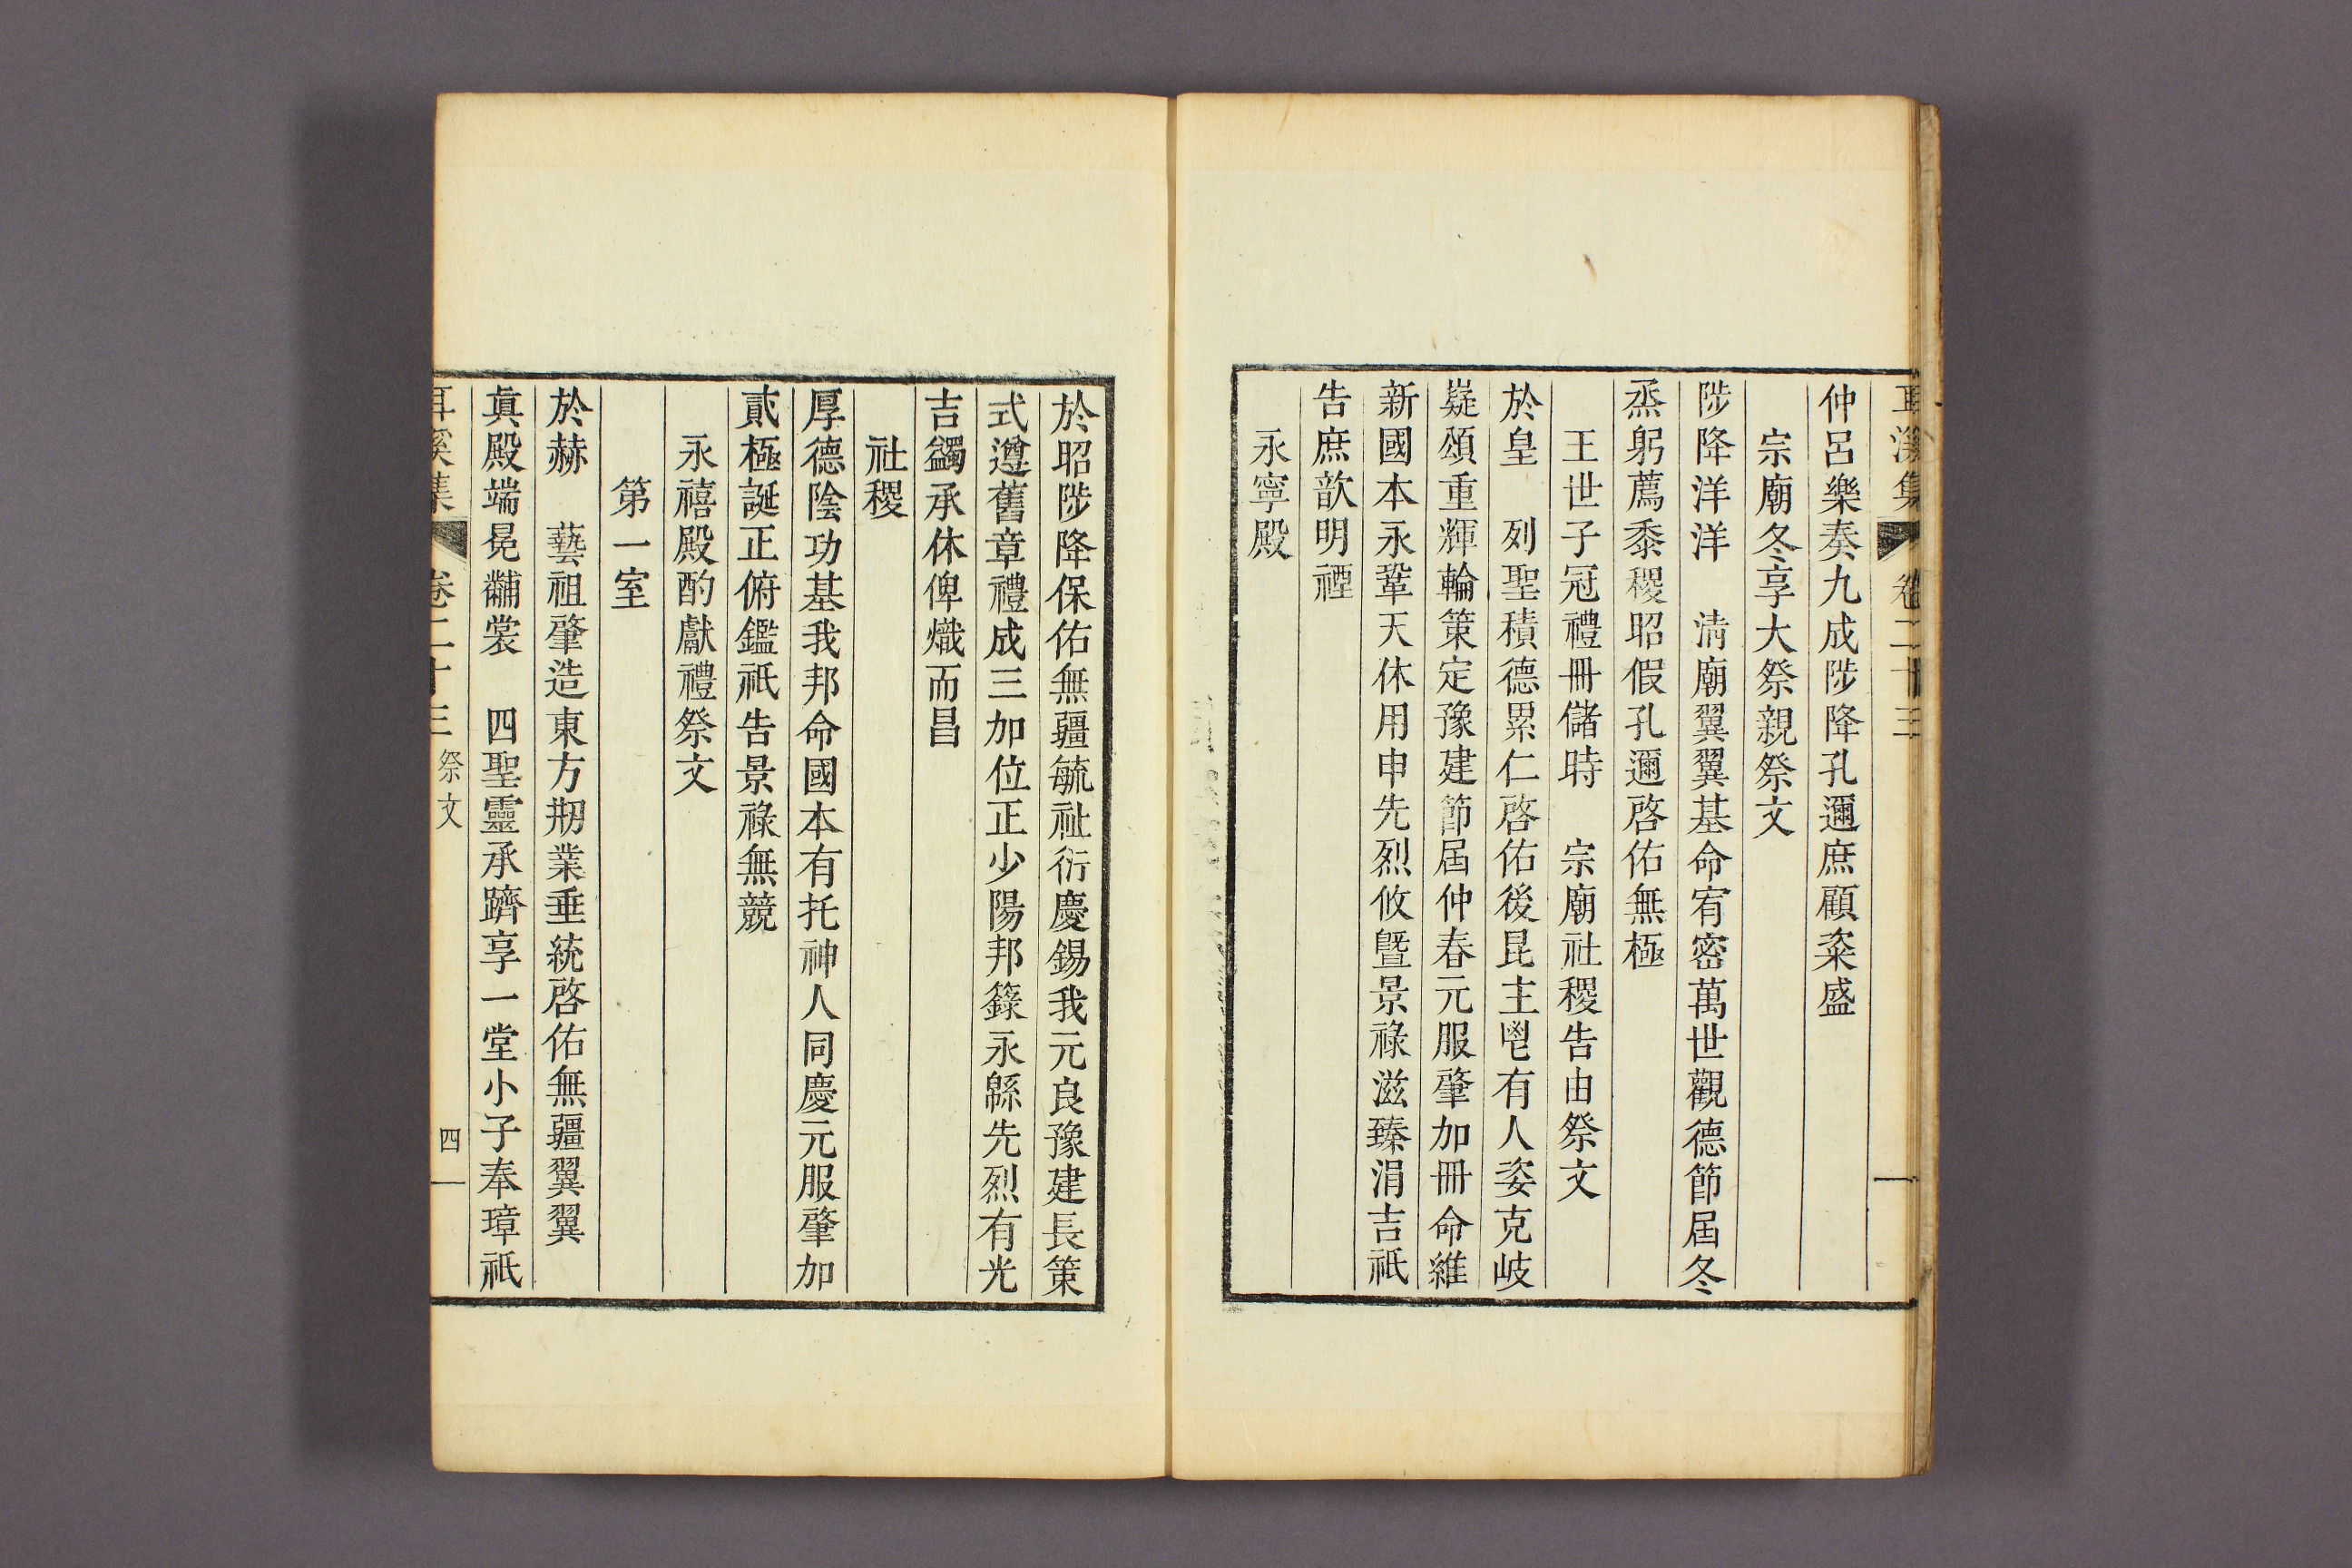 耳溪集 卷二十三
仲呂樂奏九成陟降孔邇庶顧粢盛
宗廟冬享大祭親祭文
陟降洋洋 淸廟翼翼基命宥密萬世觀德節屆冬
烝躬薦黍稷昭假孔邇啓佑無極
王世子冠禮冊儲時 宗廟社稷告由祭文
於皇 列聖積德累仁啓佑後昆主鬯有人姿克岐
嶷頌重輝輪策定豫建節屆仲春元服肇加冊命維
新國本永鞏天休用申先烈攸曁景祿滋臻涓吉祇
告庶歆明禋
永寧殿
於昭陟降保佑無疆毓祉衍慶錫我元良豫建長策
式遵舊章禮成三加位正少陽邦籙永緜先烈有光
吉蠲承休俾熾而昌
社稷
厚德陰功基我邦命國本有托神人同慶元服肇加
貳極誕正俯鑑祇告景祿無競
永禧殿酌獻禮祭文
第一室
於赫 藝祖肇造東方刱業垂統啓佑無疆翼翼
眞殿端冕黼裳 四聖靈承躋享一堂小子奉璋祇
耳溪集 卷二十三 祭文 四